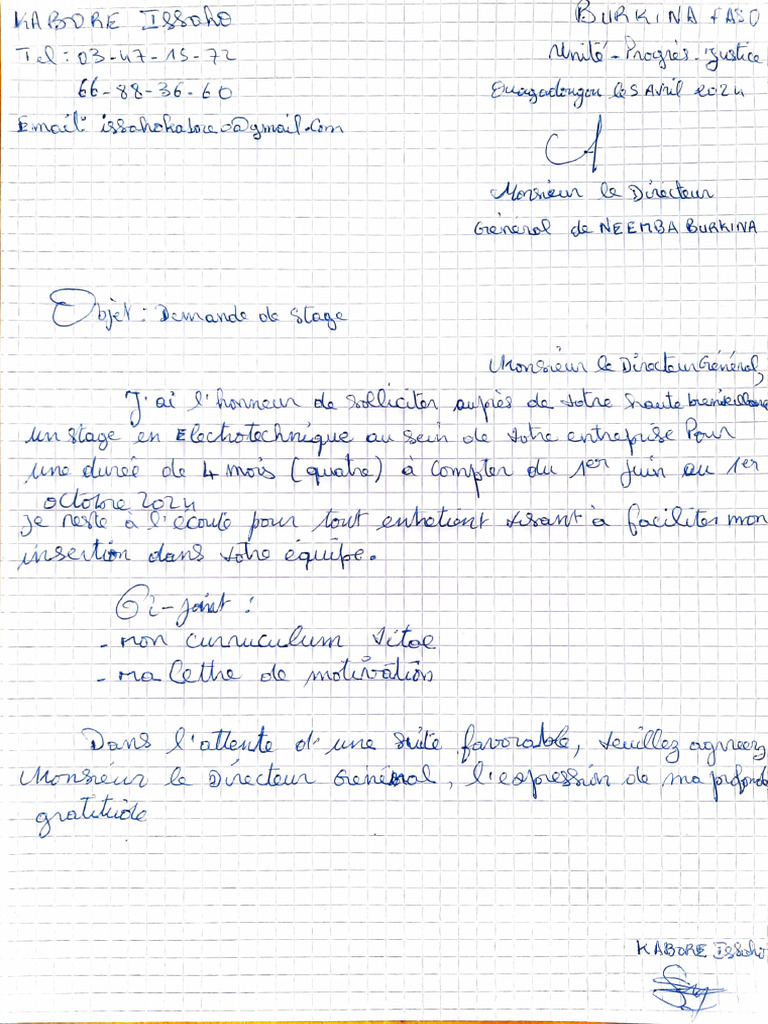 KABORE Issaho
BURKINA FASO
Tel : 03-47-15-72
Unité - Progrès - Justice
66-88-36-60
Ouagadougou le 5 Avril 2024
Email: issahokabore0@gmail.com
A
Monsieur le Directeur
Général de NEEMBA BURKINA
Objet : Demande de stage
Monsieur le Directeur Général,
J'ai l'honneur de solliciter auprès de votre haute bienveillance
un stage en Electrotechnique au sein de votre entreprise Pour
une durée de 4 mois (quatre) à compter du 1er juin au 1er
octobre 2024
je reste à l'écoute pour tout entretient visant à faciliter mon
insertion dans votre équipe.
Ci-joint :
- mon curruculum vitae
- ma lettre de motivation
Dans l'attente d'une suite favorable, veuillez agreez
Monsieur le Directeur Général, l'expression de ma profonde
gratitude
KABORE Issaho